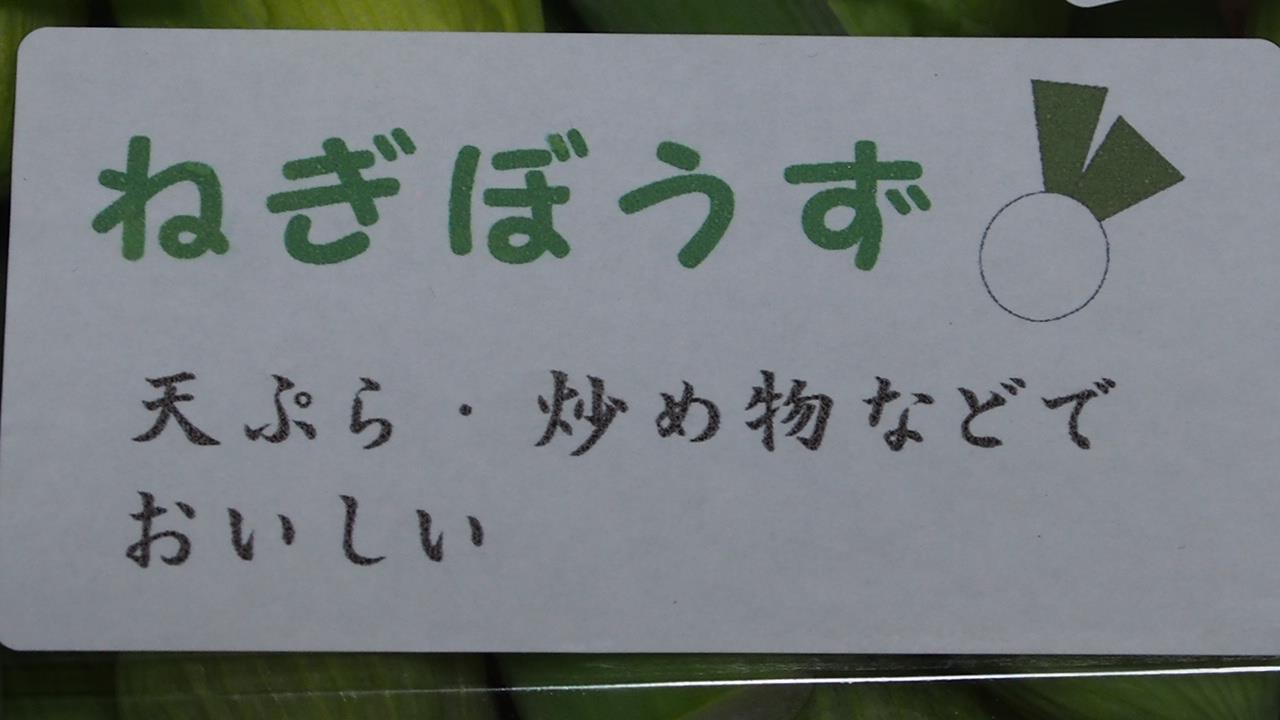 ねぎぼうず
天ぷら・炒め物などで
おいしい